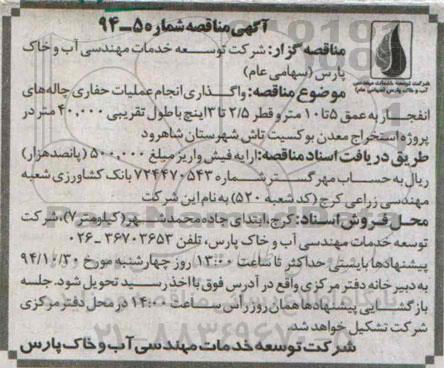 آگهی مناقصه شماره ۵۰-۹۴
مناقصه گزار: شرکت توسعه خدمات مهندسی آب و خاک
پارس (سهامی عام)
موضوع مناقصه: واگذاری انجام عملیات حفاری چاله‌های
انفجار به عمق ۵ تا ۱۰ متر و قطر ۲/۵ تا ۳ اینچ با طول تقریبی ۴۰,۰۰۰ متر در
پروژه استخراج معدن بوکسیت تاش شهرستان شاهرود
طریق دریافت اسناد مناقصه: ارایه فیش واریز مبلغ ۵۰۰,۰۰۰ (پانصد هزار)
ریال به حساب مهر گستر شماره ۷۲۴۴۷۰۵۴۳ بانک کشاورزی شعبه
مهندسی زراعی کرج (کد شعبه ۵۲۰) به نام این شرکت
محل فروش اسناد: کرج، ابتدای جاده محمدشهر (کیلومتر ۷)، شرکت
توسعه خدمات مهندسی آب و خاک پارس، تلفن ۳۶۷۰۳۶۵۳-۰۲۶
پیشنهادها بایستی حداکثر تا ساعت ۱۳:۰۰ روز چهارشنبه مورخ ۹۴/۱۰/۳۰
به دبیرخانه دفتر مرکزی واقع در آدرس فوق با اخذ رسید تحویل شود. جلسه
بازگشایی پیشنهادها همان روز راس ساعت ۱۴:۰۰ در محل دفتر مرکزی
شرکت تشکیل خواهد شد.
شرکت توسعه خدمات مهندسی آب و خاک پارس
شرکت توسعه خدمات مهندسی
آب و خاک پارس (سهامی عام)